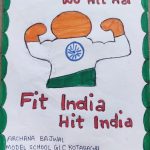 Wo Hit Hai
Fit India
Hit India
ARCHANA BAJWAL
MODEL SCHOOL GIC